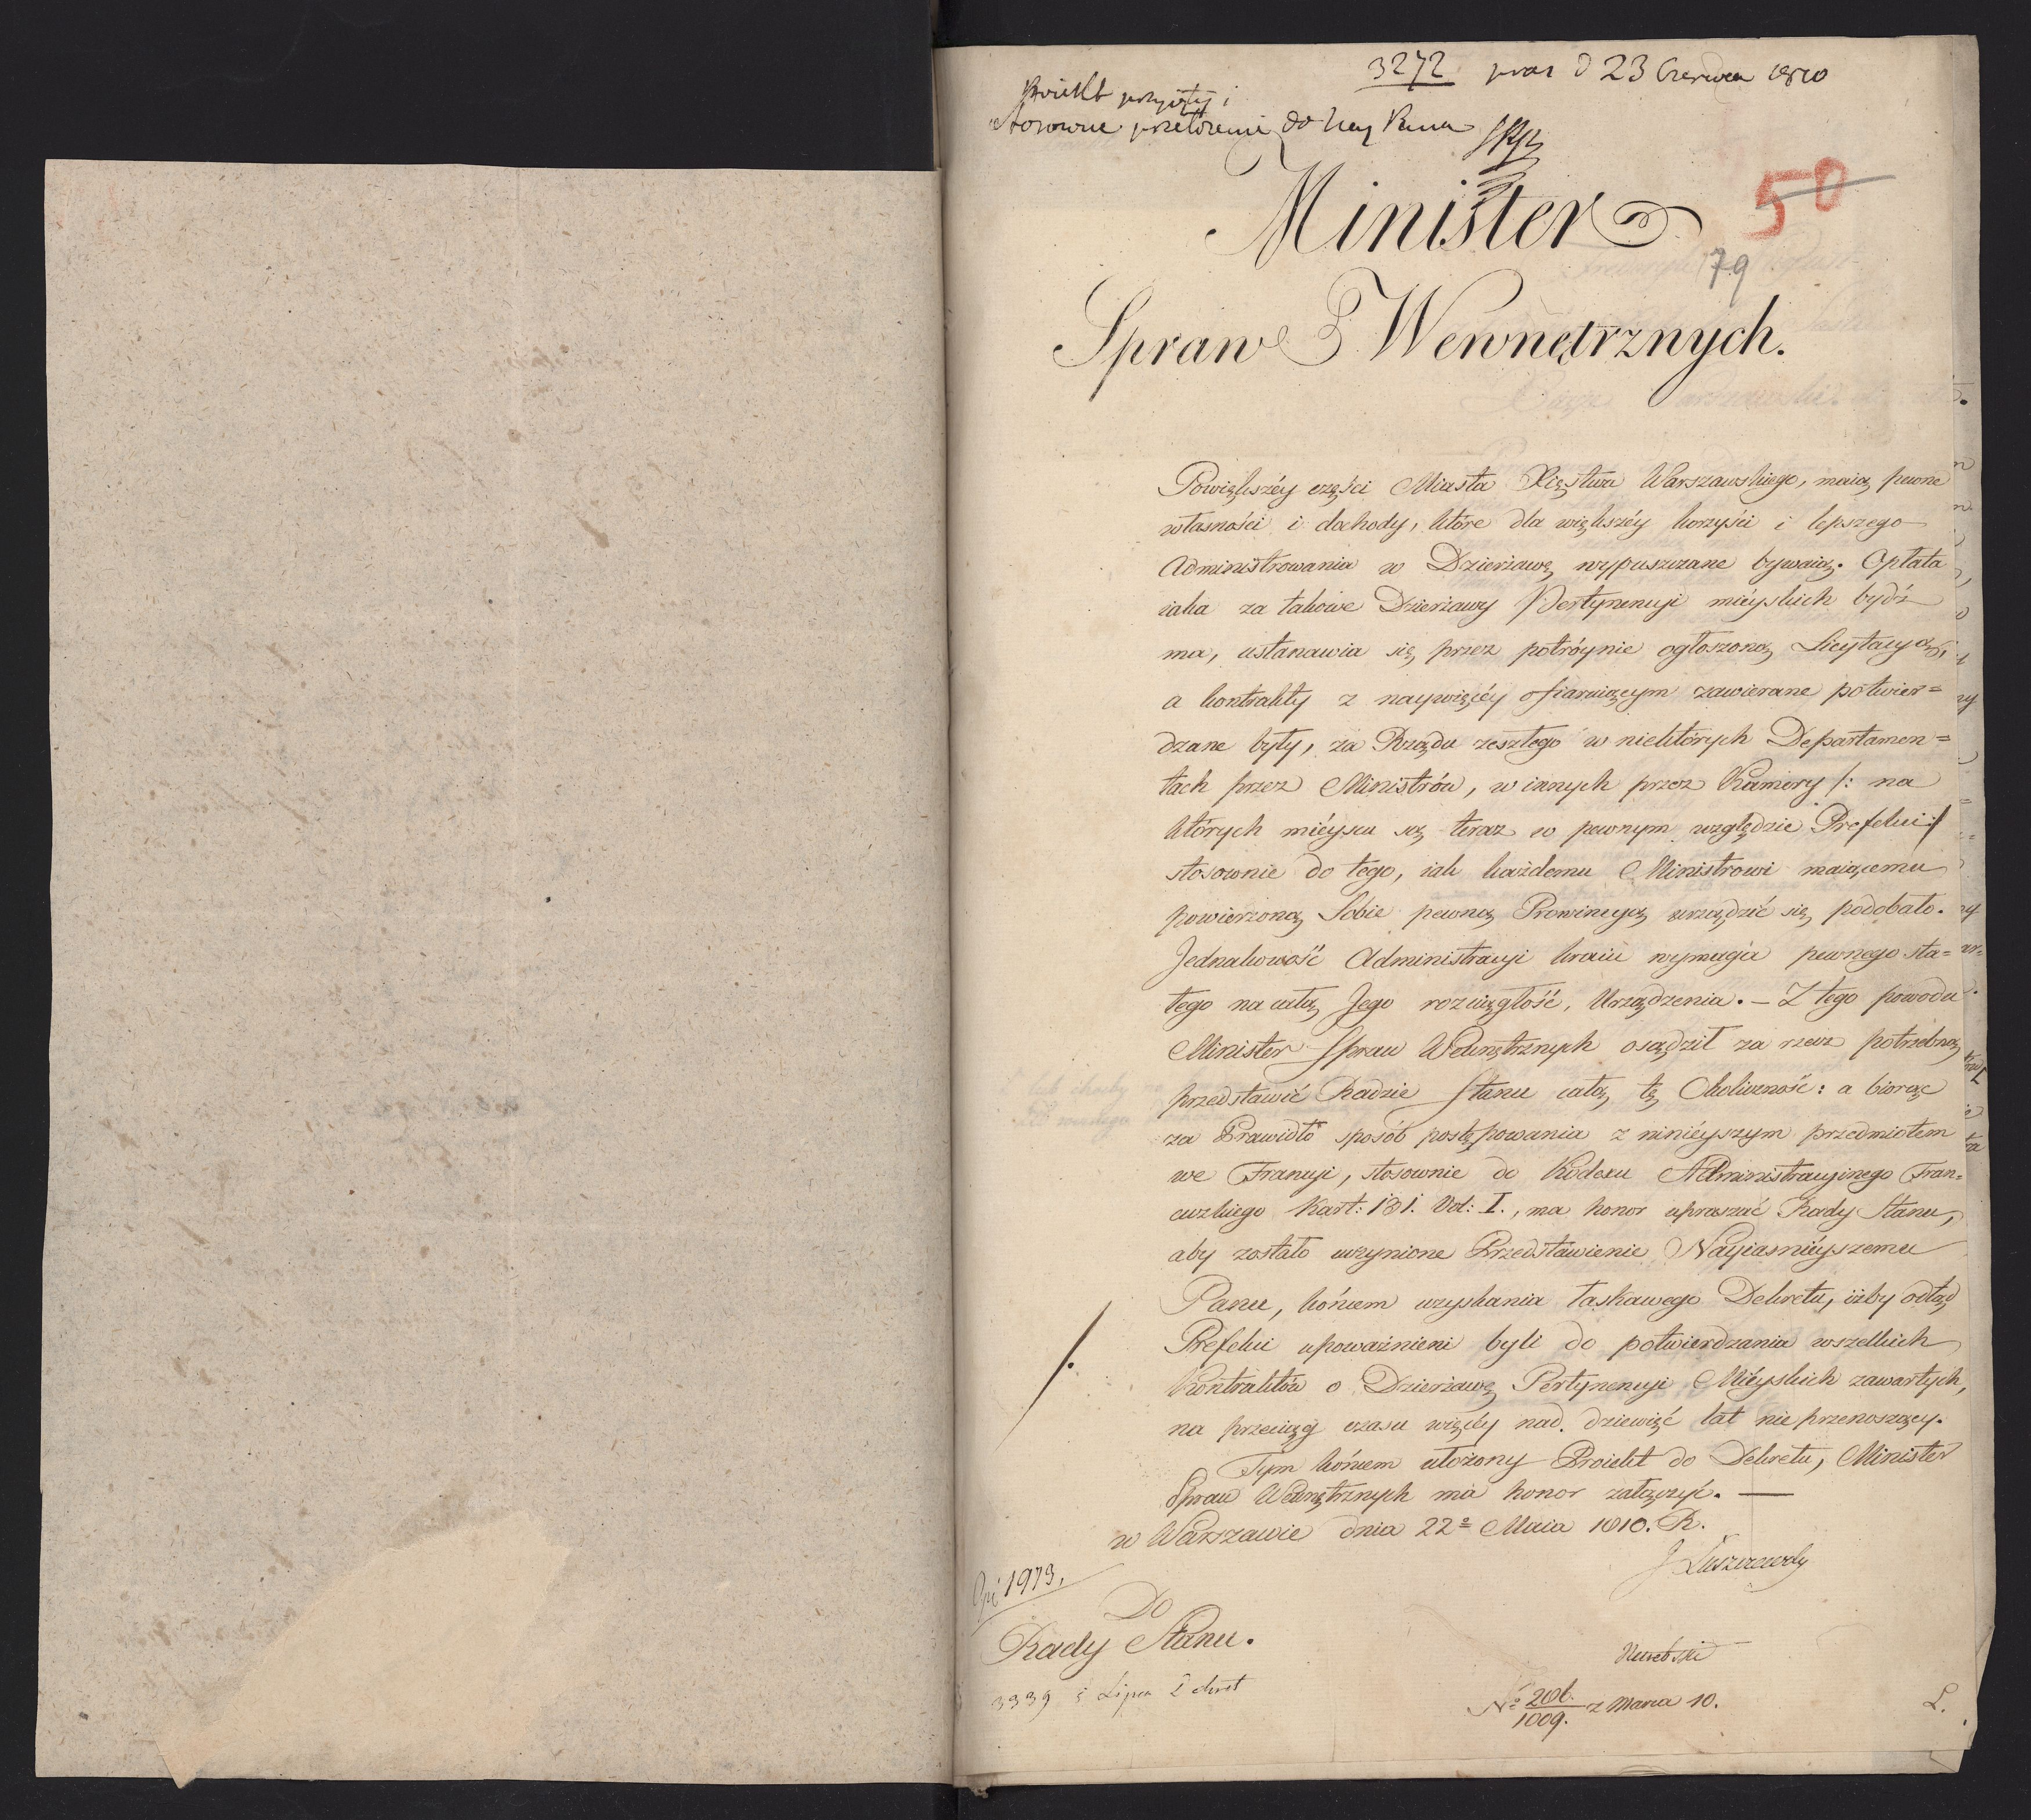 3272 pras d 23 Czerwca 1810
Proiekt przyięty i
stosowne przełożenie do Nay Pana
50
Minister
79
Spraw Wewnętrznych.
Powiększéy części Miasta Xięstwa Warszawskiego, maią pewne
własności i dochody, które dla większéy korzyści i lepszego
Administrowania w Dzierżawę wypuszczane bywaią. Opłata
iaka za takowe Dzierżawy Pertynencyi mieyskich bydź
ma, ustanawia się przez potróynie ogłoszoną Licytacyą,
a kontrakty z naywięcéy ofiaruiącym zawierane potwier=
dzane były, za Rządu zeszłego w niektórych Departamen=
tach przez Ministrów, w innych przez Kamery /: na
których mieyscu są teraz w pewnym względzie Prefekci :/
stosownie do tego, iak każdemu Ministrowi maiącemu
powierzoną Sobie pewną Prowincyą urządzić się podobało.
Jednakowość Administracyi kraiu wymaga pewnego sta=
łego na całą Jego rozciągłość, Urządzenia. – Z tego powodu
Minister Spraw Wewnętrznych osądził za rzecz potrzebną
przedstawić Radzie Stanu całą tę Okoliczność: a biorąc
za Prawidło sposób postępowania z ninieyszym przedmiotem
we Francyi, stosownie do Kodexu Administracyinego Fran=
cuzkiego Kart: 181. Vol: I., ma honor upraszać Rady Stanu,
aby zostało uczynione Przedstawienie Nayiaśnieyszemu
Panu, końcem uzyskania łaskawego Dekretu, iżby odtąd
Prefekci upoważnieni byli do potwierdzania wszelkich
Kontraktów o Dzierżawę Pertynencyi Mieyskich zawartych,
na przeciąg czasu więcéy nad dziewięć lat nie przenoszący.
Tym końcem ułożony Proiekt do Dekretu, Minister
Spraw Wewnętrznych ma honor załączyć. —
w Warszawie dnia 22º Maia 1810. R.
J Łuszczewsky
1973.
Do
Rady Stanu.
3339 Lipca
Nº 206./1009. z Marca 10.
L.